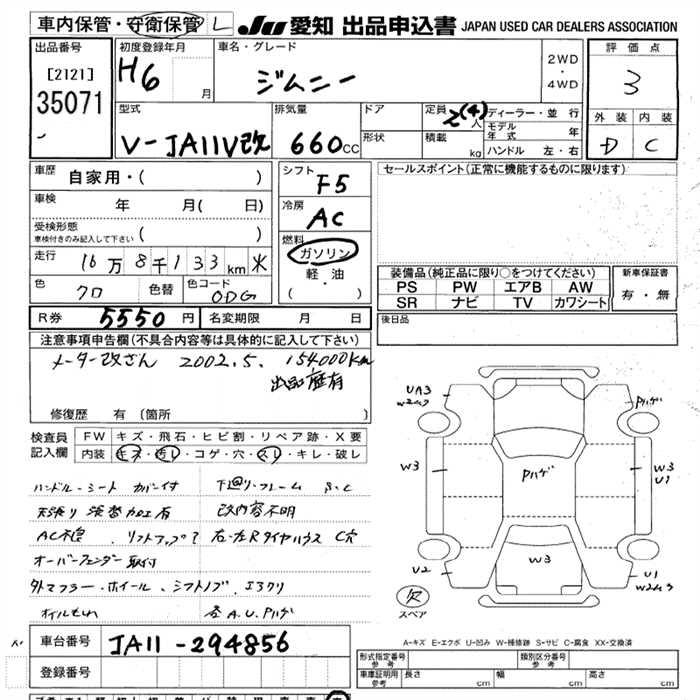 車内保管・守衛保管 L JU 愛知 出品申込書 JAPAN USED CAR DEALERS ASSOCIATION
出品番号 初度登録年月 車名・グレード 評価点
[2121] H6 月 ジムニー 2WD・4WD 3
35071 型式 排気量 ドア 定員 2(4)人 ディーラー・並行 外装 内装
V-JA11V改 660cc 形状 積載 kg モデル年式 年 D C
ハンドル 左・右
車歴 自家用・( ) シフト F5 セールスポイント(正常に機能するものに限ります)
車検 年 月( 日) 冷房 AC
受検形態 車検付きのみ記入して下さい ( ) 燃料 ガソリン
走行 16万8千133km 米 軽・油
色 クロ 色替 色コード ODG ( ・ )
装備品(純正品に限り○をつけてください) 新車保証書
PS PW エアB AW 有・無
SR ナビ TV カワシート
R券 5550円 名変期限 月 日 後日品
注意事項申告欄(不具合内容等は具体的に記入して下さい)
メーター改ざん 2002.5. 154000km
出品歴有
修復歴 有 (箇所
検査員記入欄 FW キズ・飛石・ヒビ割・リペア跡・X要
内装 キズ・汚レ・コゲ・穴・スレ・キレ・破レ
ハンドル・シート カバー付 下廻り・フレーム S.C
加工有 改内容不明
AC不良 リフトアップ 右・左Rタイヤハウス C穴
オーバーフェンダー取付
外マフラー・ホイール、シフトノブ
オイルもれ 各A.U.Pハゲ
UA3 W2 Pハゲ
W3 Pハゲ W3 U1
U2 W3 U1 W2
欠 スペア
A-キズ E-エクボ U-凹み W-補修跡 S-サビ C-腐食 XX-交換済
車台番号 JA11-294856
登録番号
形式指定番号 参考 類別区分番号 参考
車庫証明用 参考 長さ cm 幅 cm 高さ cm